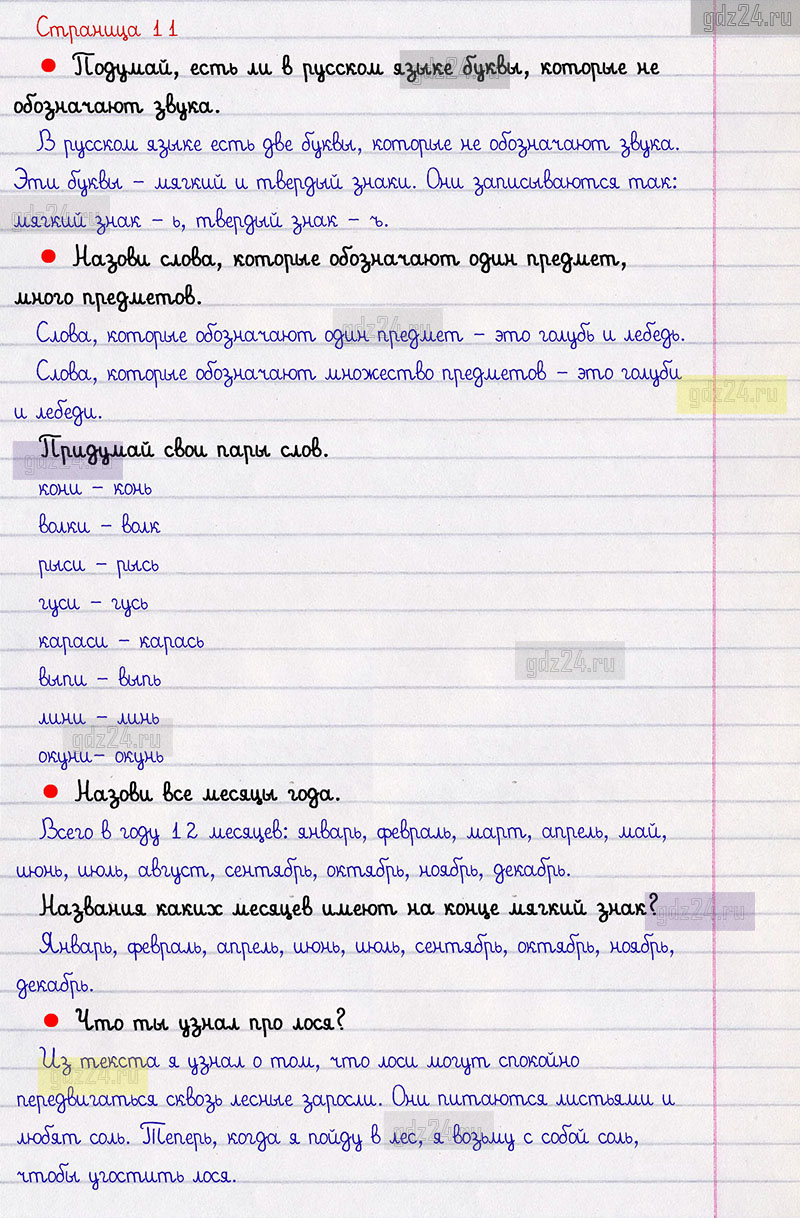 gdz24.ru
Страница 11
• Подумай, есть ли в русском языке буквы, которые не
обозначают звука.
В русском языке есть две буквы, которые не обозначают звука.
Эти буквы – мягкий и твердый знаки. Они записываются так:
мягкий знак – ь, твердый знак – ъ.
• Назови слова, которые обозначают один предмет,
много предметов.
Слова, которые обозначают один предмет – это голубь и лебедь.
Слова, которые обозначают множество предметов – это голуби
gdz24.ru
и лебеди.
Придумай свои пары слов.
кони – конь
волки – волк
рыси – рысь
гуси – гусь
караси – карась
gdz24.ru
выпи – выпь
лини – линь
gdz24.ru
окуни– окунь
• Назови все месяцы года.
Всего в году 12 месяцев: январь, февраль, март, апрель, май,
июнь, июль, август, сентябрь, октябрь, ноябрь, декабрь.
Названия каких месяцев имеют на конце мягкий знак?
gdz24.ru
Январь, февраль, апрель, июнь, июль, сентябрь, октябрь, ноябрь,
декабрь.
• Что ты узнал про лося?
Из текста я узнал о том, что лоси могут спокойно
gdz24.ru
передвигаться сквозь лесные заросли. Они питаются листьями и
любят соль. Теперь, когда я пойду в лес, я возьму с собой соль,
чтобы угостить лося.